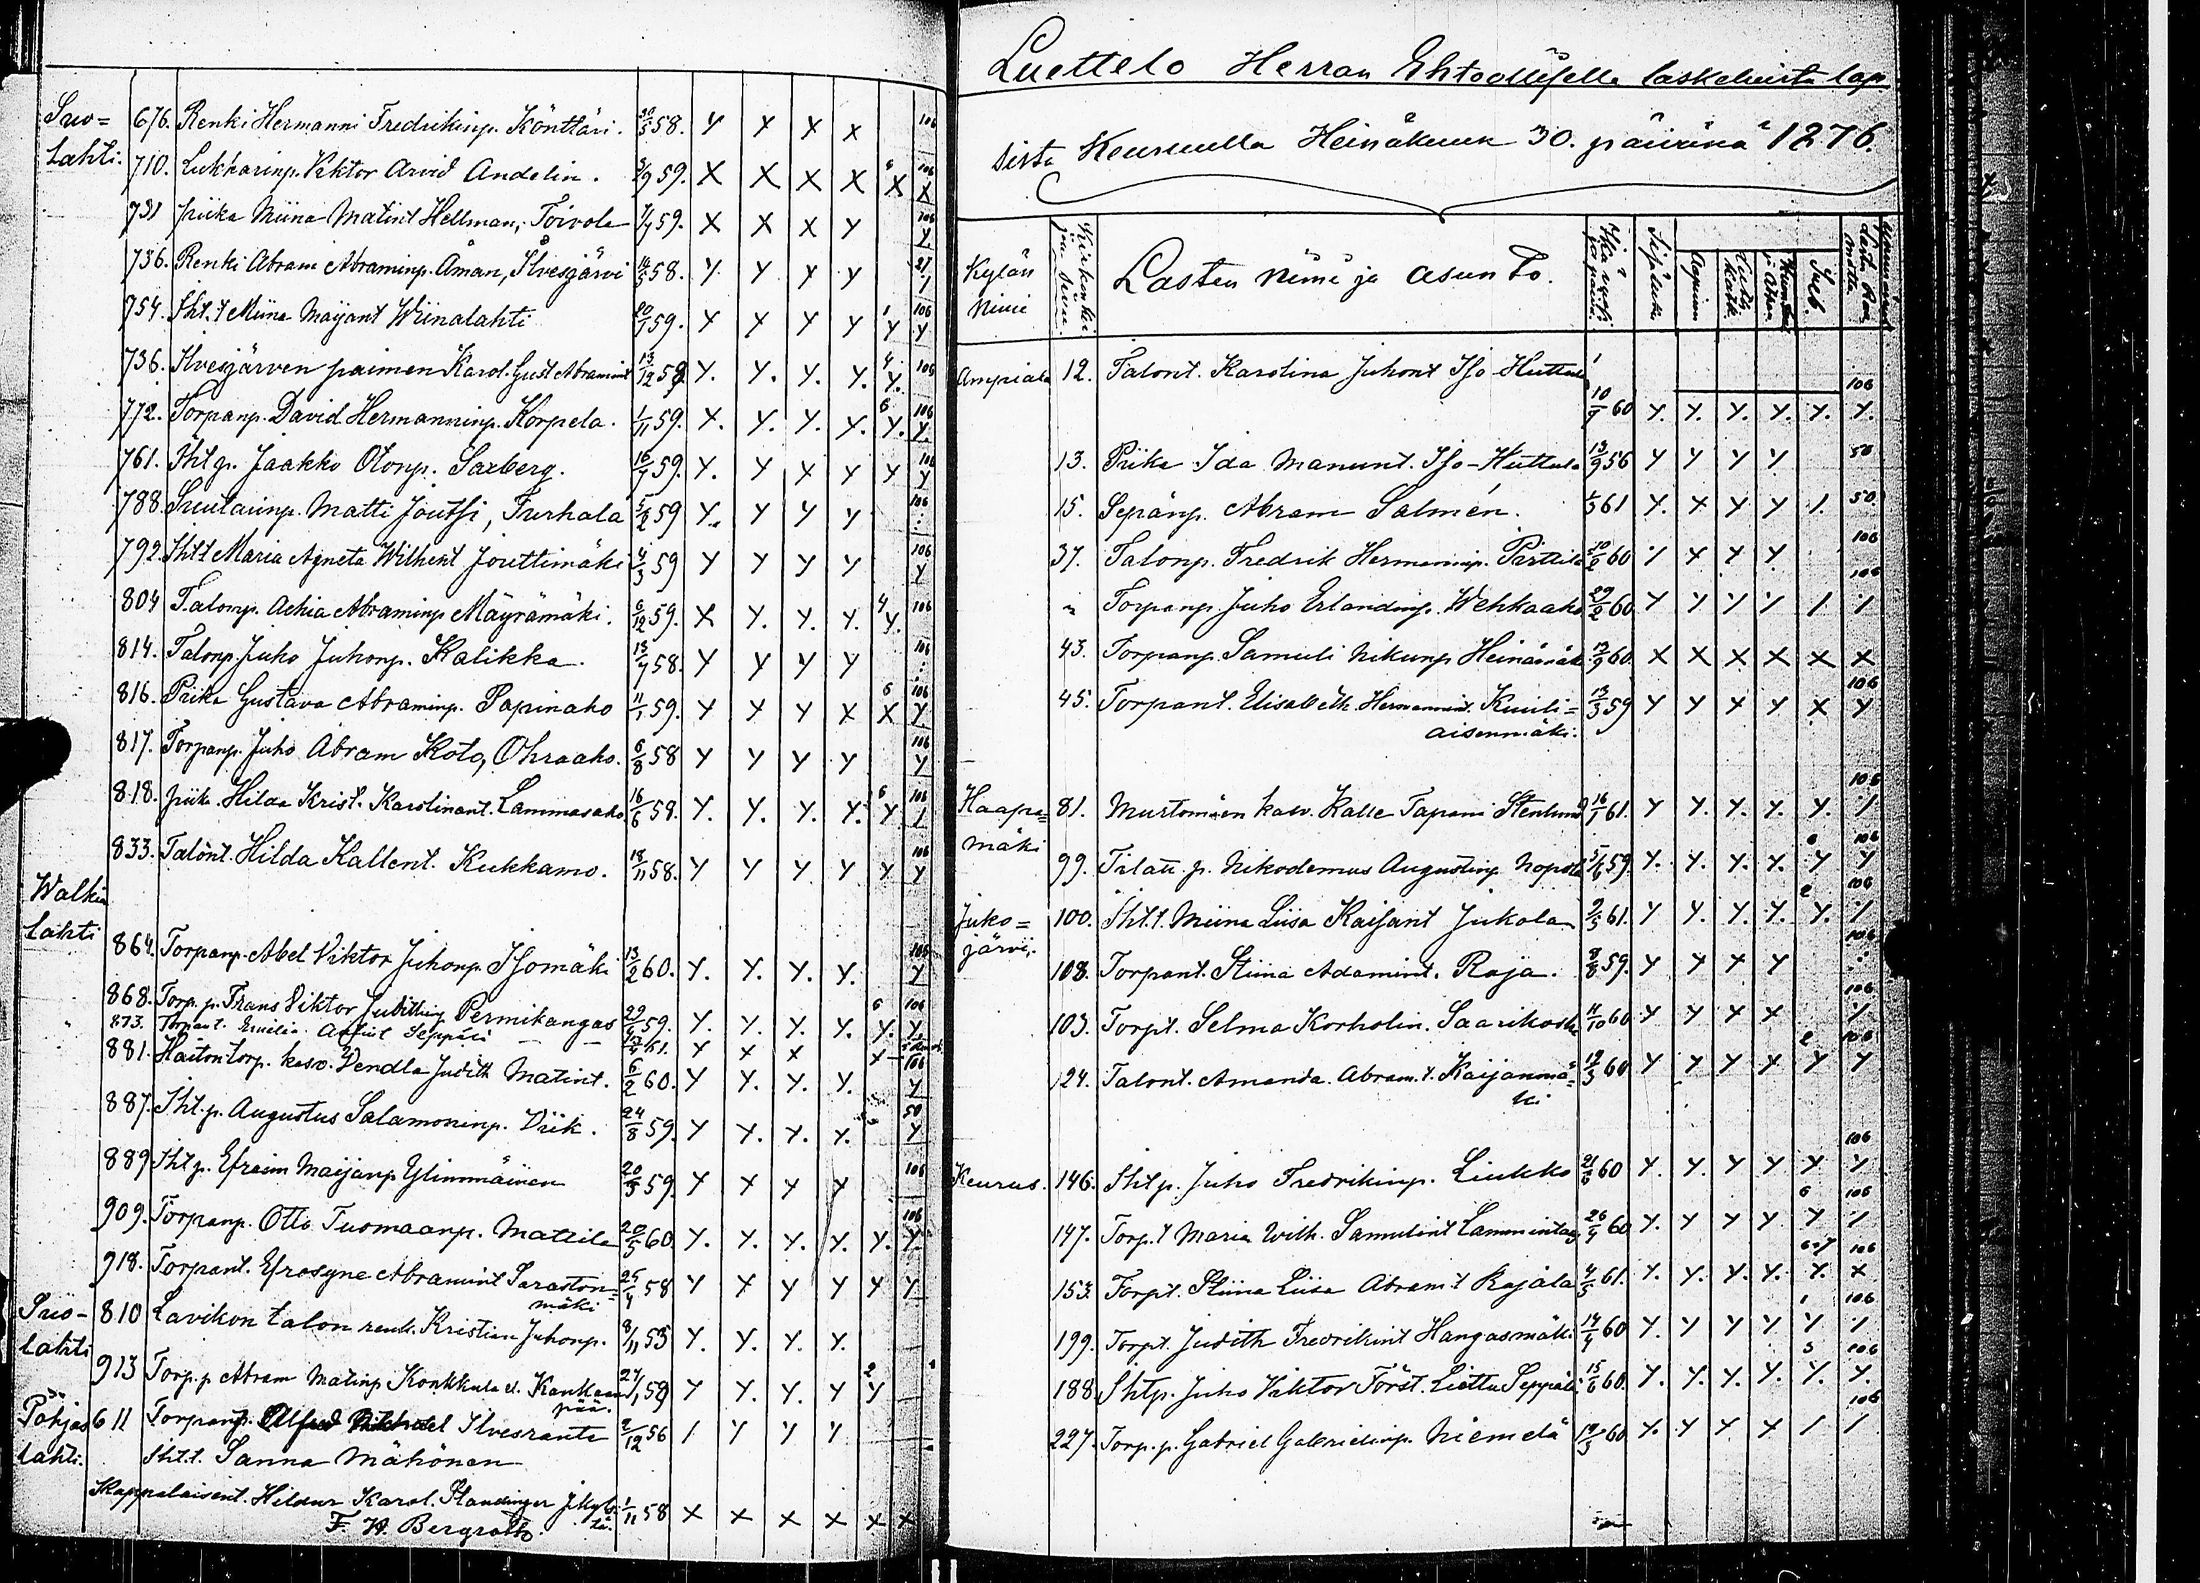 Suo= 676. Renki Hermanni Fredrikinp. Könttäri. 30/5 58. y x x x 106
lahti. 710. Lukkarinp. Viktor Arvid Andelin. 3/9 59. X X X X X 106 X
731 piika Miina Matint Hellman, Toivola 7/7 59. x x x y 106 y
736. Renki Abram Abraminp. Åman, Ilvesjärvi 14/5 58. y y y y
754. Iht.t Miina Maijant Wiinalahti 20/7 59. y y y y y 106 y
736. Ilvesjärven paimen Karol. Gust Abramint 13/12 58. y. y. y. y. 4 y. 106
772. Torpanp. David Hermanninp. Korpela. 1/11 59. y. y. y. y. 6 y. 106 y.
761. Ihtp. Jaakko Otonp. Saxberg. 16/7 59. y. y x y y 106 y
788. Suutarinp. Matti Joutsi, Turhala 5/2 59 y. y y y 106
792. Iht.t Maria Agneta Wilhent Jouttimäki 4/3 59 y y y y 106 y
804 Talonp. Achia Abraminp Mäyrämäki. 6/12 59. x y. y. y. 4 y. 106
814. Talonp. Juho Juhonp. Kalikka. 13/7 58. y y y y 106
816. Piika Gustava Abraminp. Papinaho 11/1 59. y y y x 6 x 106 y
817. Torpanp. Juho Abram Koto, Ohraaho. 6/8 58 y y y y 106 y
818. piika Hilda Krist. Karolinant. Lammasaho 16/6 58. y. y. y. y. 6 y 106
833. Talont. Hilda Kallent. Kukkamo. 18/11 58. y y y y y 106 y
Walkia
lahti
864. Torpanp. Abel Viktor Juhonp. Isomäki 13/2 60. y. y. y. y. 106 y
868. Torp. p. Frans Viktor Judithinp Permikangas 29/ 59. y. y. y. y. 6 y. 106 y.
873. Torpant. Emilia Seppälä 61. x x x x
881. Haiton torp. kasv. Vendla Judith Matint. 6/2 60. y y. y. y. 106 y
887. Iht.p. Augustus Salamoninp. Viik. 24/8 59. y y. y. y. 50 y
889 Iht p. Efraim Maijanp Ylinmäinen 20/5 59. y x y y 106
909. Torpanp. Otto Tuomaanp. Mattila 20/5 60. y. y. y. y. y. 106 y.
918. Torpant. Efrosyne Abramint Saraston= 25/4 58 y x y y y y
mäki
Suo- 810 Lavikon talon renk. Kristian Juhonp. 8/11 55 y. y. y. y.
lahti
913 Torp.p Abram Matinp Konkkula el. Kankaan 27/1 59 y y. y. y 2 y
pää.
Pohjas 611 Torpanp. Ilvesranta 2/12 56 1 y y y
lahti. Iht.t. Sanna Mähönen
Kappalaisent. Hildur Karol. Standinger Jkyl 1/11 58 x x x x x x
F. W. Bergroth.
Luettelo Herran Ehtoolliselle lasketuista lap-
sista Keuruulla Heinäkuun 30. päivänä 1876.
Kylän Nimi
Kirkonkirjan sivu.
Lasten nimi ja asunto.
Ikä vuosi ja päivä.
Sisäluku
Aapinen
Ampiala 12. Talont. Karolina Juhont Iso-Huttula 10/9 60 y. y. y. y. y. 106 y.
13. Piika Ida Manunt. Iso-Huttula 13/9 56 y y y y 50
15. Sepänp. Abram Salmén. 61 y. x y y 1. 50.
37. Talonp. Fredrik Hermanninp. Pirttilä 60 y x x y 106
" Torpanp. Juho Erlandinp. Wehkaaho 29/2 60 y y y y 1 106
43. Torpanp. Samuli Nikunp Heinämäki 60. X X X X X X
45. Torpant. Elisabeth. Hermannint. Kuuli= 13/3 59 y y x y x 106 y
aisenmäki.
Haapa= 81. Murtomäen kasv. Kalle Tapani Stenlund 16/1 61. y y. y. y. y. 106
mäki
99. Tilall. p. Nikodemus Augustinp. Nopola 5/6 59. y. y. y. y. 6 y 106 y
Juko= 100. Iht.t. Miina Liisa Kaisant Jukola 9/5 61. y y. y. y. y. 106
järvi.
108. Torpant. Stiina Adamint. Raja. 8/8 59. y y x y 106
103. Torpt. Selma Korholin. Saarikoski 11/10 60 y y y x 106
124. Talont. Amanda. Abram.t. Kaijanmä= 19/3 60 y y y x y 106 y
ki
Keurus. 146. Iht p. Juho Fredrikinp. Liukko 21/6 60 y. y. y y y 106 y
147. Torp.t Maria Wilh. Samulint Lammintaus 26/4 60 y. y y y 6 y 106
153. Torpt. Stiina Liisa Abram.t Rajala 4/5 61. y. y. y. y. y. 106 x
199. Torpt. Judith Fredrikint Hangasmäki 14/4 60 y. y y y y 106
188. Ihtp. Juho Viktor Först. Liettu Seppälä 15/6 60. y. y. y. y. 5 y. 106 y.
227. Torp. p. Gabriel Gabrielinp. Niemelä 60. y. y y x 1 106